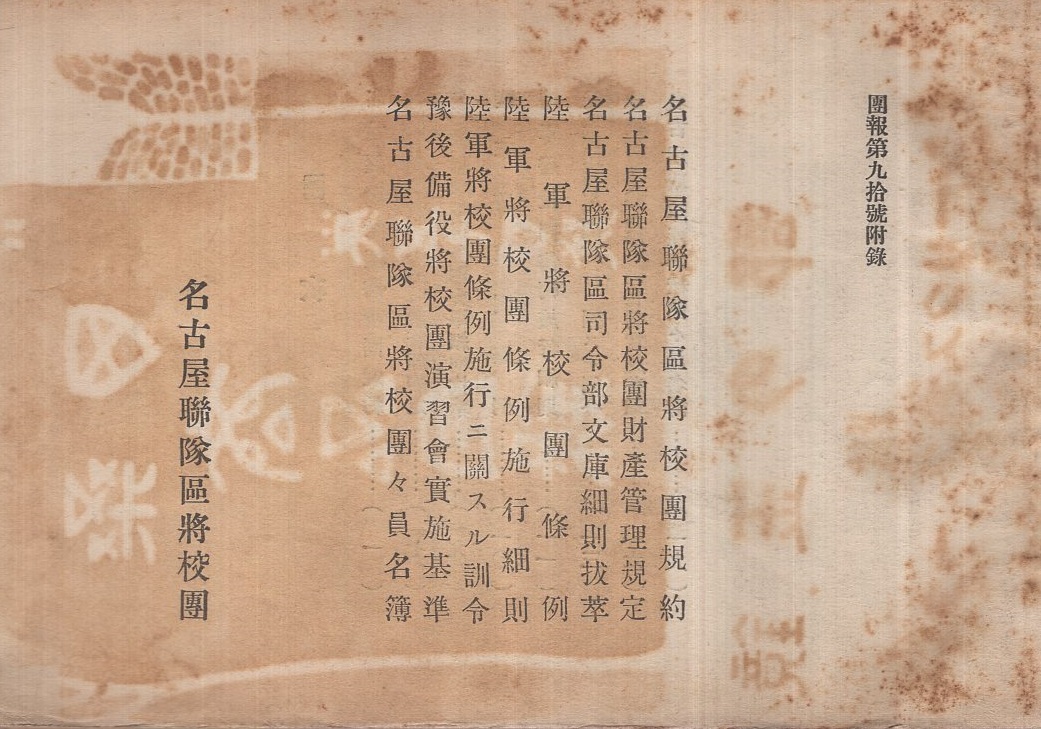 團報第九拾號附錄
名古屋聯隊區將校團規約
名古屋聯隊區將校團財產管理規定
名古屋聯隊區司令部文庫細則拔萃
陸軍將校團條例
陸軍將校團條例施行細則
陸軍將校團條例施行ニ關スル訓令
豫後備役將校團演習會實施基準
名古屋聯隊區將校團々員名簿
名古屋聯隊區將校團